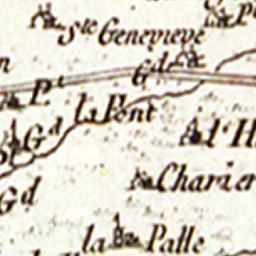 Ste Genevieve
Gde
Pt
la Pont
Gd
l'H
Charier
Gd
la Palle